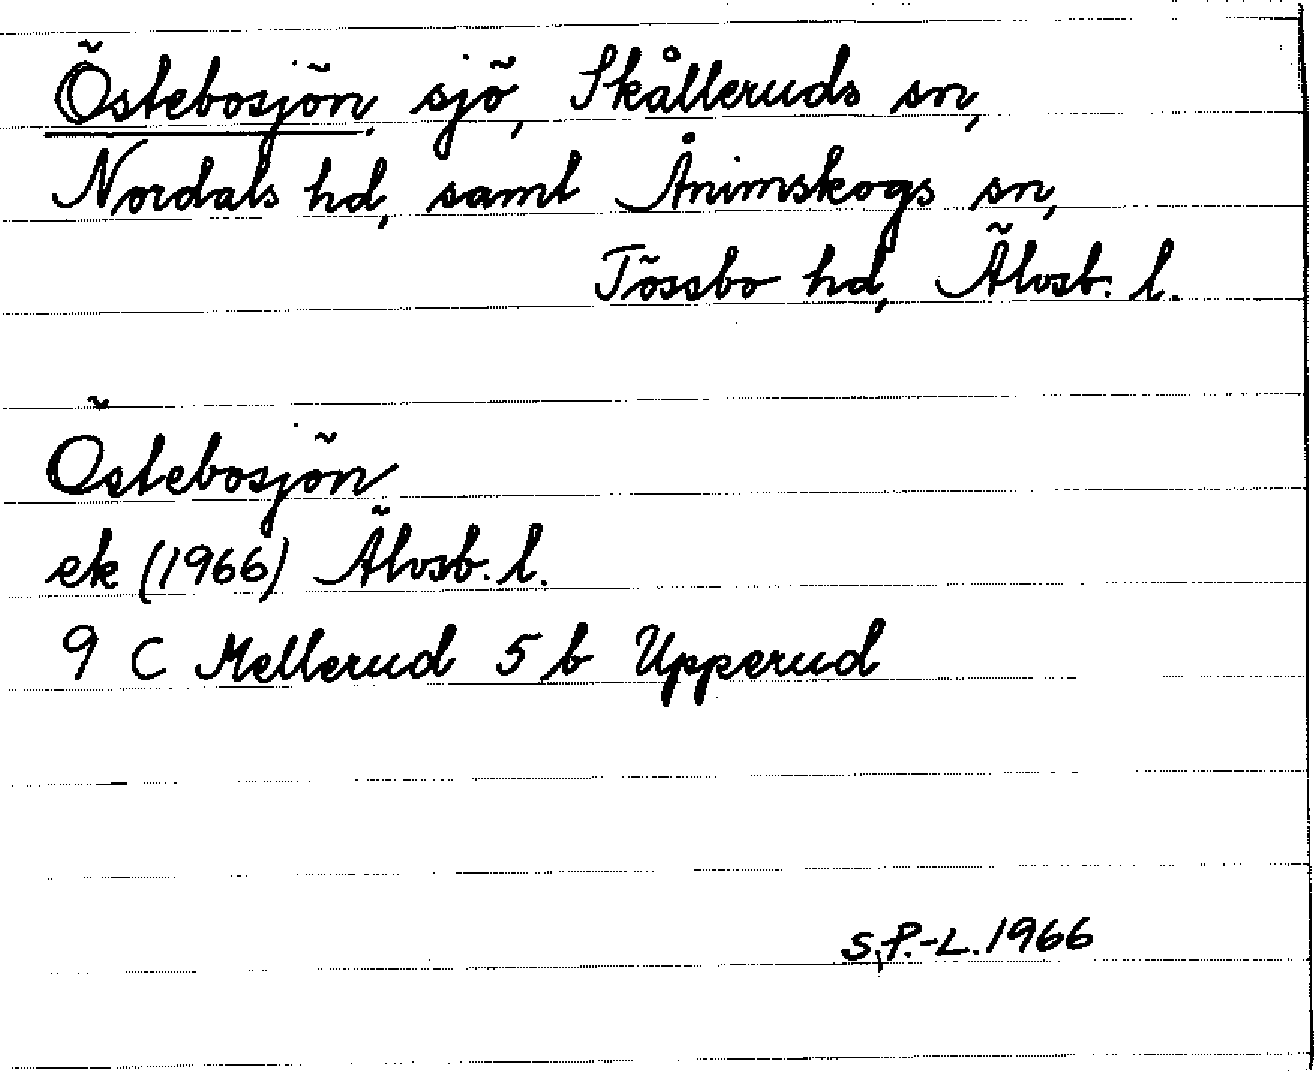 Östebosjön, sjö, Skålleruds sn,
Nordals hd, samt Ånimskogs sn,
Tössbo hd, Älvsb. l.
Östebosjön
ek (1966) Älvsb. l.
9 C Mellerud 5 b Upperud
S.P.-L. 1966